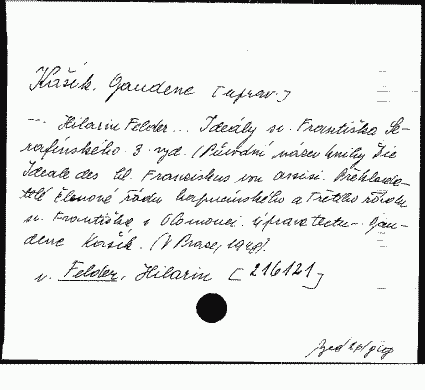 Kašík, Gaudenc [uprav.]
-- Hilarin Felder... Ideály sv. Františka Se-
rafinského 3. vyd. (Původní název knihy Die
Ideale des hl. Franziskus von Assisi. Překlada-
telé členové řádu kapucínského a Třetího řádu
sv. Františka v Olomouci. Úprava textu - Gau-
denc Kašík. (V Praze, 1948).
v. Felder, Hilarin [216121]